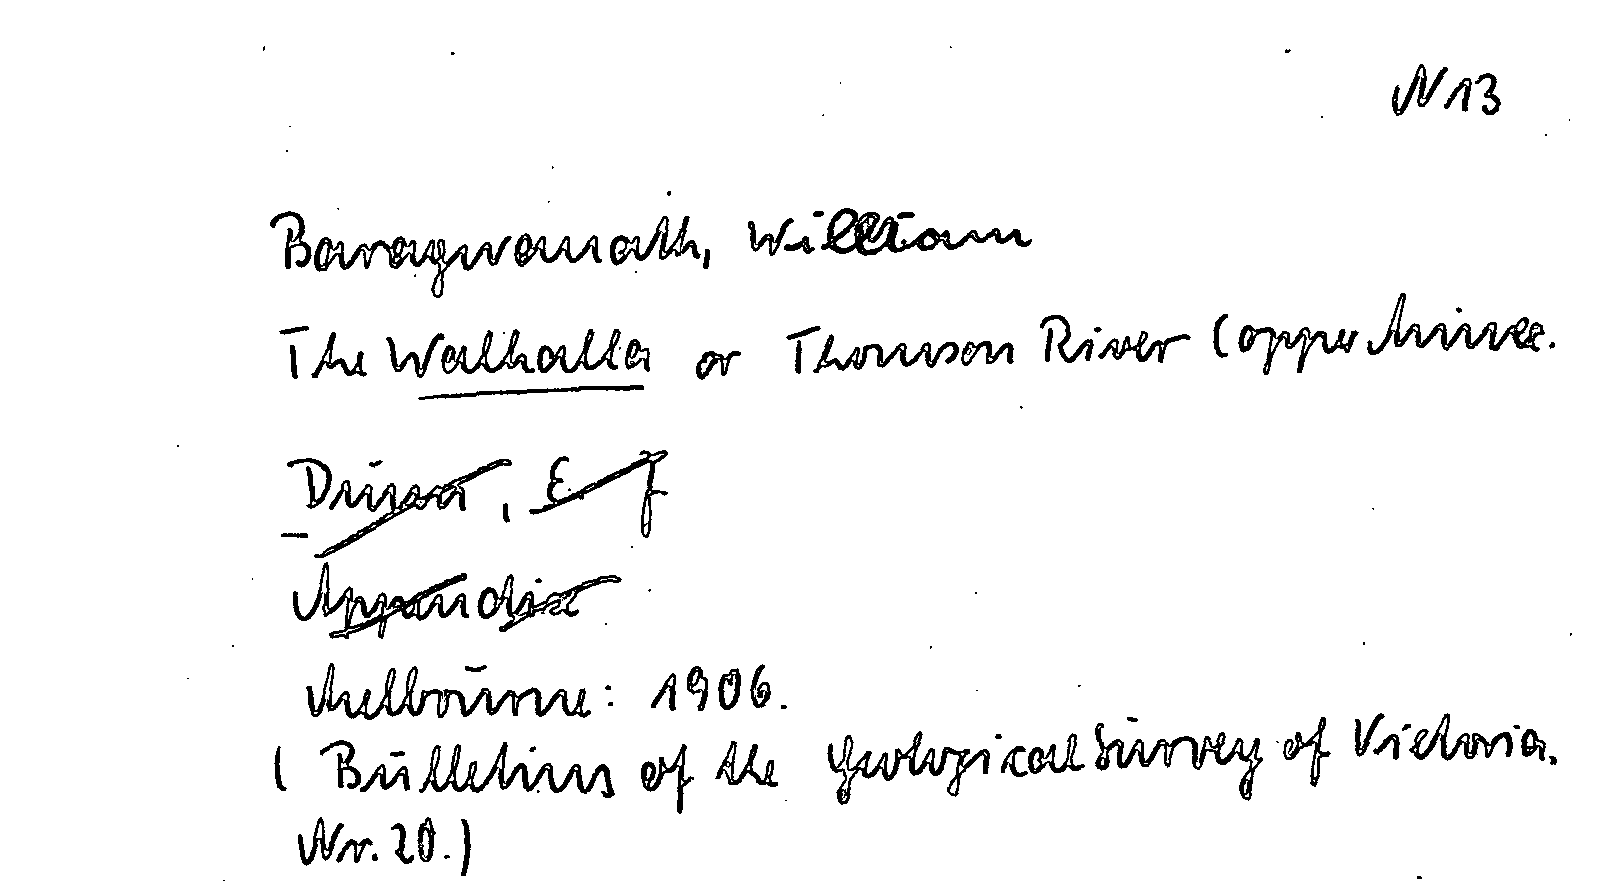 N 13
Baragwanath, William
The Walhalla or Thomson River Copper Mine.
Dunn, E. J
Appendix
Melbourne: 1906.
( Bulletins of the Geological Survey of Victoria.
Nr. 20.)